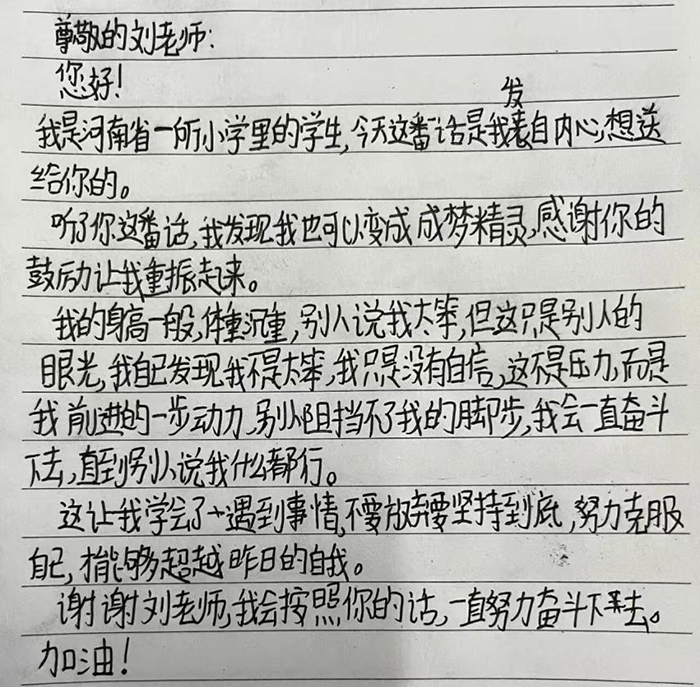 尊敬的刘老师:
您好!
我是河南省一所小学里的学生,今天这番话是我发自内心,想送
给你的。
听了你这番话,我发现我也可以变成成梦精灵,感谢你的
鼓励让我重振起来。
我的身高一般,体重沉重,别人说我太笨,但这只是别人的
眼光,我自己发现我不是太笨,我只是没有自信,这不是压力,而是
我前进的一步动力,别人阻挡不了我的脚步,我会一直奋斗
下去,直到别人说我什么都行。
这让我学会了遇到事情,不要放弃要坚持到底,努力克服
自己,才能够超越昨日的自我。
谢谢刘老师,我会按照你的话,一直努力奋斗下去。
加油!